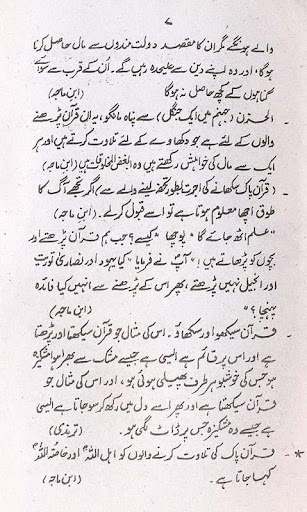 ۷
والے ہونگے مگر ان کا مقصد دولت مندوں سے مال حاصل کرنا
ہوگا، اور وہ اپنے دین سے علیحدہ رہیں گے۔ اُن کے قرب سے سوائے
گناہوں کے کچھ حاصل نہ ہوگا (ابن ماجہ)
- الحزن (جہنم میں ایک جنگل) سے پناہ مانگو، یہ ان قرآن پڑھنے
والوں کے لئے ہے جو دکھاوے کے لئے تلاوت کرتے ہیں اور ہر
ایک سے مال کی خواہش رکھتے ہیں وہ ابغض المخلوق ہیں (ابن ماجہ)
- (قرآن پاک سکھانے کی اجرت بطور تحفہ لینے والے سے) اگر تجھے آگ کا
طوق اچھا معلوم ہوتا ہے تو اسے قبول کرلے۔ (ابن ماجہ)
- "علم اٹھ جائے گا" پوچھا "کیسے؟ جب ہم قرآن پڑھتے اور
بچوں کو پڑھاتے ہیں"! آپؐ نے فرمایا "کیا یہود اور نصاریٰ توریت
اور انجیل نہیں پڑھتے، پھر اس کے پڑھنے سے انہیں کیا فائدہ
پہنچا؟" (ابن ماجہ)
- قرآن سیکھو اور سکھاؤ۔ اس کی مثال جو قرآن سیکھتا اور پڑھتا
ہے اور اس پر قائم ہے ایسی ہے جیسے مشک سے بھرا ہوا مشکیزہ
ہو جس کی خوشبو ہر طرف پھیلی ہوئی ہو، اور اس کی مثال جو
قرآن سیکھتا ہے اور پھر اسے دل میں رکھ کر سو جاتا ہے ایسی
ہے جیسے وہ مشکیزہ جس پر ڈاٹ لگی ہو۔ (ترمذی)
*- قرآن پاک کی تلاوت کرنے والوں کو اہل اللہ اور خاصۃ اللہ
کہا جاتا ہے۔ (ابن ماجہ)